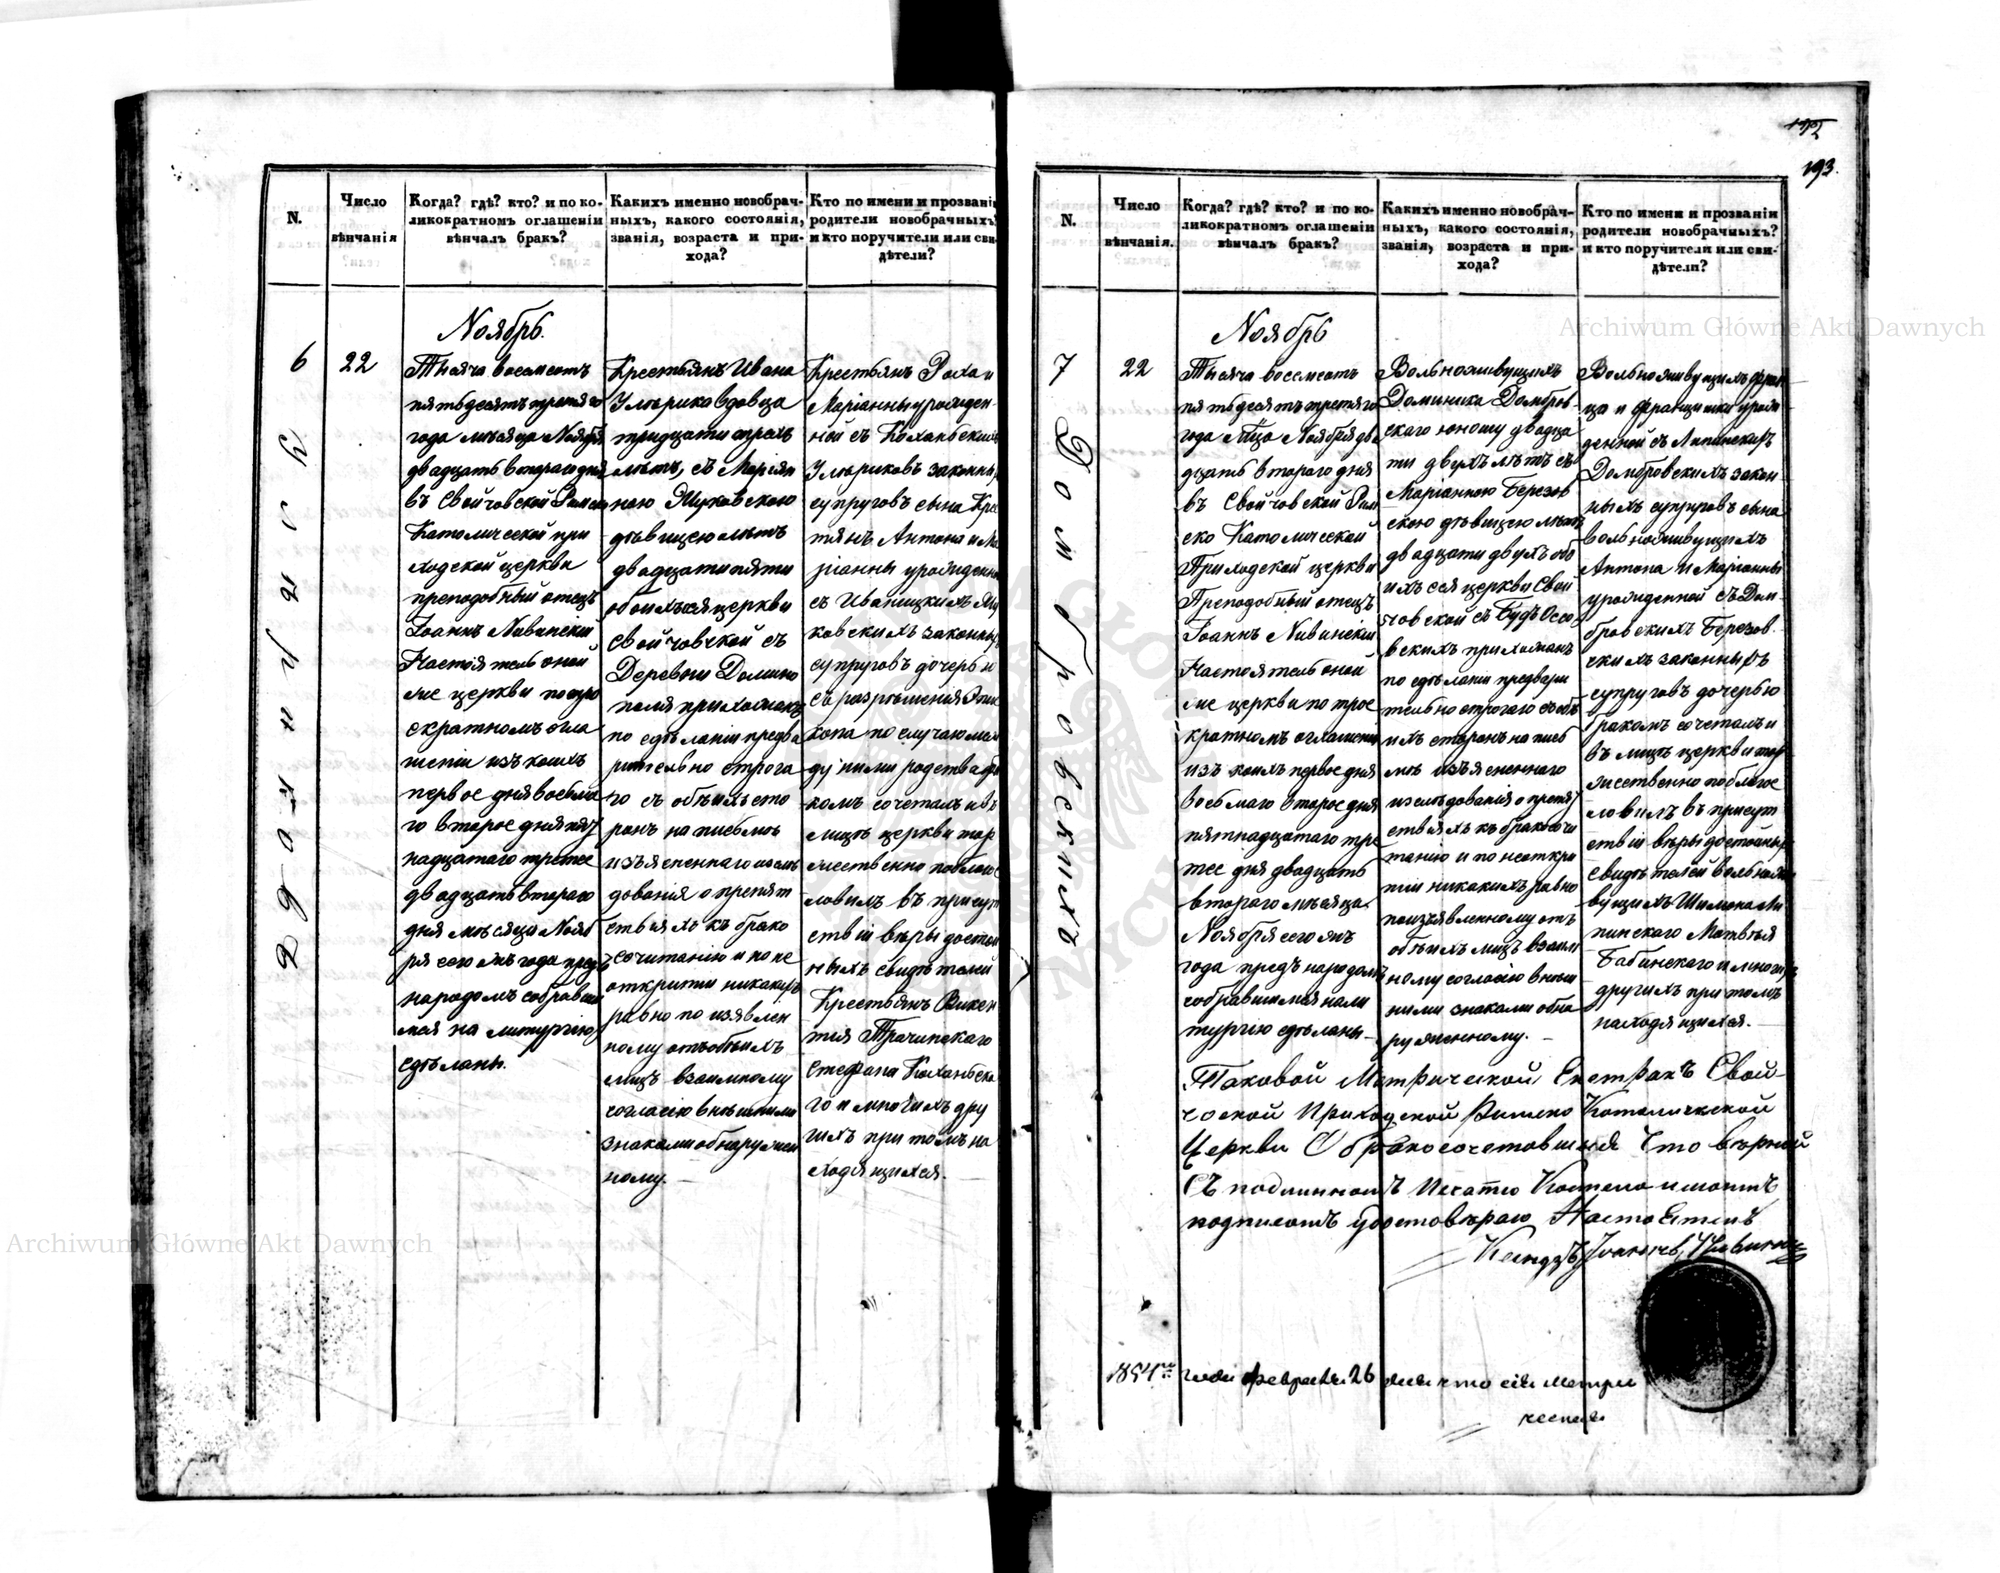 N.
Число
вѣнчанія
Когда? гдѣ? кто? и по ко-
ликократномъ оглашеніи
вѣнчалъ бракъ?
Какихъ именно новобрач-
ныхъ, какого состоянія,
званія, возраста и при-
хода?
Кто по имени и прозванію
родители новобрачныхъ?
и кто поручители или сви-
дѣтели?
Ноябрь.
6
22
Тысяча восемсотъ
пятьдесятъ третяго
года мѣсяца Ноября
двадцать втораго дня
въ Свойчовской Римско
Католической при
ходской церкви
преподобный отецъ
Іоаннъ
Настоятель оной
же церкви по трое
скратномъ огла
шеніи изъ коихъ
первое дня восьма
го второе дня пят
надцатаго третее
двадцать втораго
дня мѣсяца Нояб
ря сего жъ года предъ
народомъ собравши
мся на литургію
сдѣланы.
Крестьянъ Ивана
Ульрика вдовца
тридцати трехъ
лѣтъ, съ Маріян
ною Жуковскою
дѣвицею лѣтъ
двадцати пяти
обоихъ сея церкви
Свойчовской съ
Деревни Домино
поля прихожанъ
по сдѣланіи предва
рительно строга
го съ обѣихъ сто
ронъ на письмѣ
изъясненнаго изслѣ
дованія о препят
ствіяхъ къ брако
сочитанію и по не
открытіи никакихъ
равно по изявлен
ному отъ обѣихъ
лицъ взаимному
согласію внѣшними
знаками обнаружен
ному.
Крестьянъ Роха и
Маріанны урожден-
ной съ Коханьскихъ
Ульриковъ законныхъ
супруговъ сына Крес
тянъ Антона и Ма
ріанны урожденной
съ Иваницкихъ Жу
ковскихъ законныхъ
супруговъ дочерью
съ разрѣшенія Епис
копа по случаю меж
ду ними родства
комъ сочеталъ и въ
лицѣ церкви тор
жественно поблагос
ловилъ въ присут
ствіи вѣры достой
ныхъ свидѣтелей
Крестьянъ Викен
тія Трачинскаго
Стефана Коханьска
го и многихъ дру
гихъ при томъ на
ходящихся.
192
193.
N.
Число
вѣнчанія.
Когда? гдѣ? кто? и по ко-
ликократномъ оглашеніи
вѣнчалъ бракъ?
Какихъ именно новобрач-
ныхъ, какого состоянія,
званія, возраста и при-
хода?
Кто по имени и прозванію
родители новобрачныхъ?
и кто поручители или сви-
дѣтели?
Ноябрь
7
Домбровскихъ
22
Тысяча восемсотъ
пятьдесятъ третяго
года мѣсяца Ноября два
дцать втораго дня
въ Свойчовской Рим
ско Католической
Приходской церкви
Преподобный отецъ
Іоаннъ
Настоятель оной
же церкви по трое
кратномъ оглашеніи
изъ коихъ первое дня
восьмаго второе дня
пятнадцатаго тре
тее дня двадцать
втораго мѣсяца
Ноября сего жъ
года предъ народомъ
собравшимся на ли
тургію сдѣланы
Вольноживущихъ
Доминика Домбров
скаго юношу двадца
ти двухъ лѣтъ съ
Маріанною Березов
скою дѣвицею лѣтъ
двадцати двухъ обо
ихъ сея церкви Свой
човской съ Будъ Оссо
вскихъ прихожанъ
по сдѣланіи предвари
тельно строгаго съ обѣ
ихъ сторонъ на пись
мѣ изъясненнаго
изслѣдованія о препят
ствіяхъ къ бракосочи
танію и по неоткры
тіи никакихъ равно
поизъявленному отъ
обѣихъ лицъ взаим
ному согласію внѣш
ними знаками обна
руженному.
Вольноживущихъ Фран
ца и Францишки урож
денной съ Липинскихъ
Домбровскихъ закон-
ныхъ супруговъ сына
вольноживущихъ
Антона и Маріанны
урожденной съ Дом-
бровскихъ Березов-
скихъ законныхъ
супруговъ дочерью
бракомъ сочеталъ и
въ лицѣ церкви тор
жественно поблагос
ловилъ въ присут
ствіи вѣры достойныхъ
свидѣтелей вольножи
вущихъ Шимона Ли
пинскаго Матвѣя
Бабинскаго и многихъ
другихъ при томъ
находящихся.
Таковой Метрической Екстрактъ Свой-
човской Приходской Римско Католической
Церкви О бракосочетовшихся что вѣрный
Съ подлиннымъ печатю Костела и моимъ
подписомъ удостовѣраю Настоятель
Ксендзъ
1854го года февраля 26 дня что сія метри
ческая
Archiwum Główne Akt Dawnych
Archiwum Główne Akt Dawnych